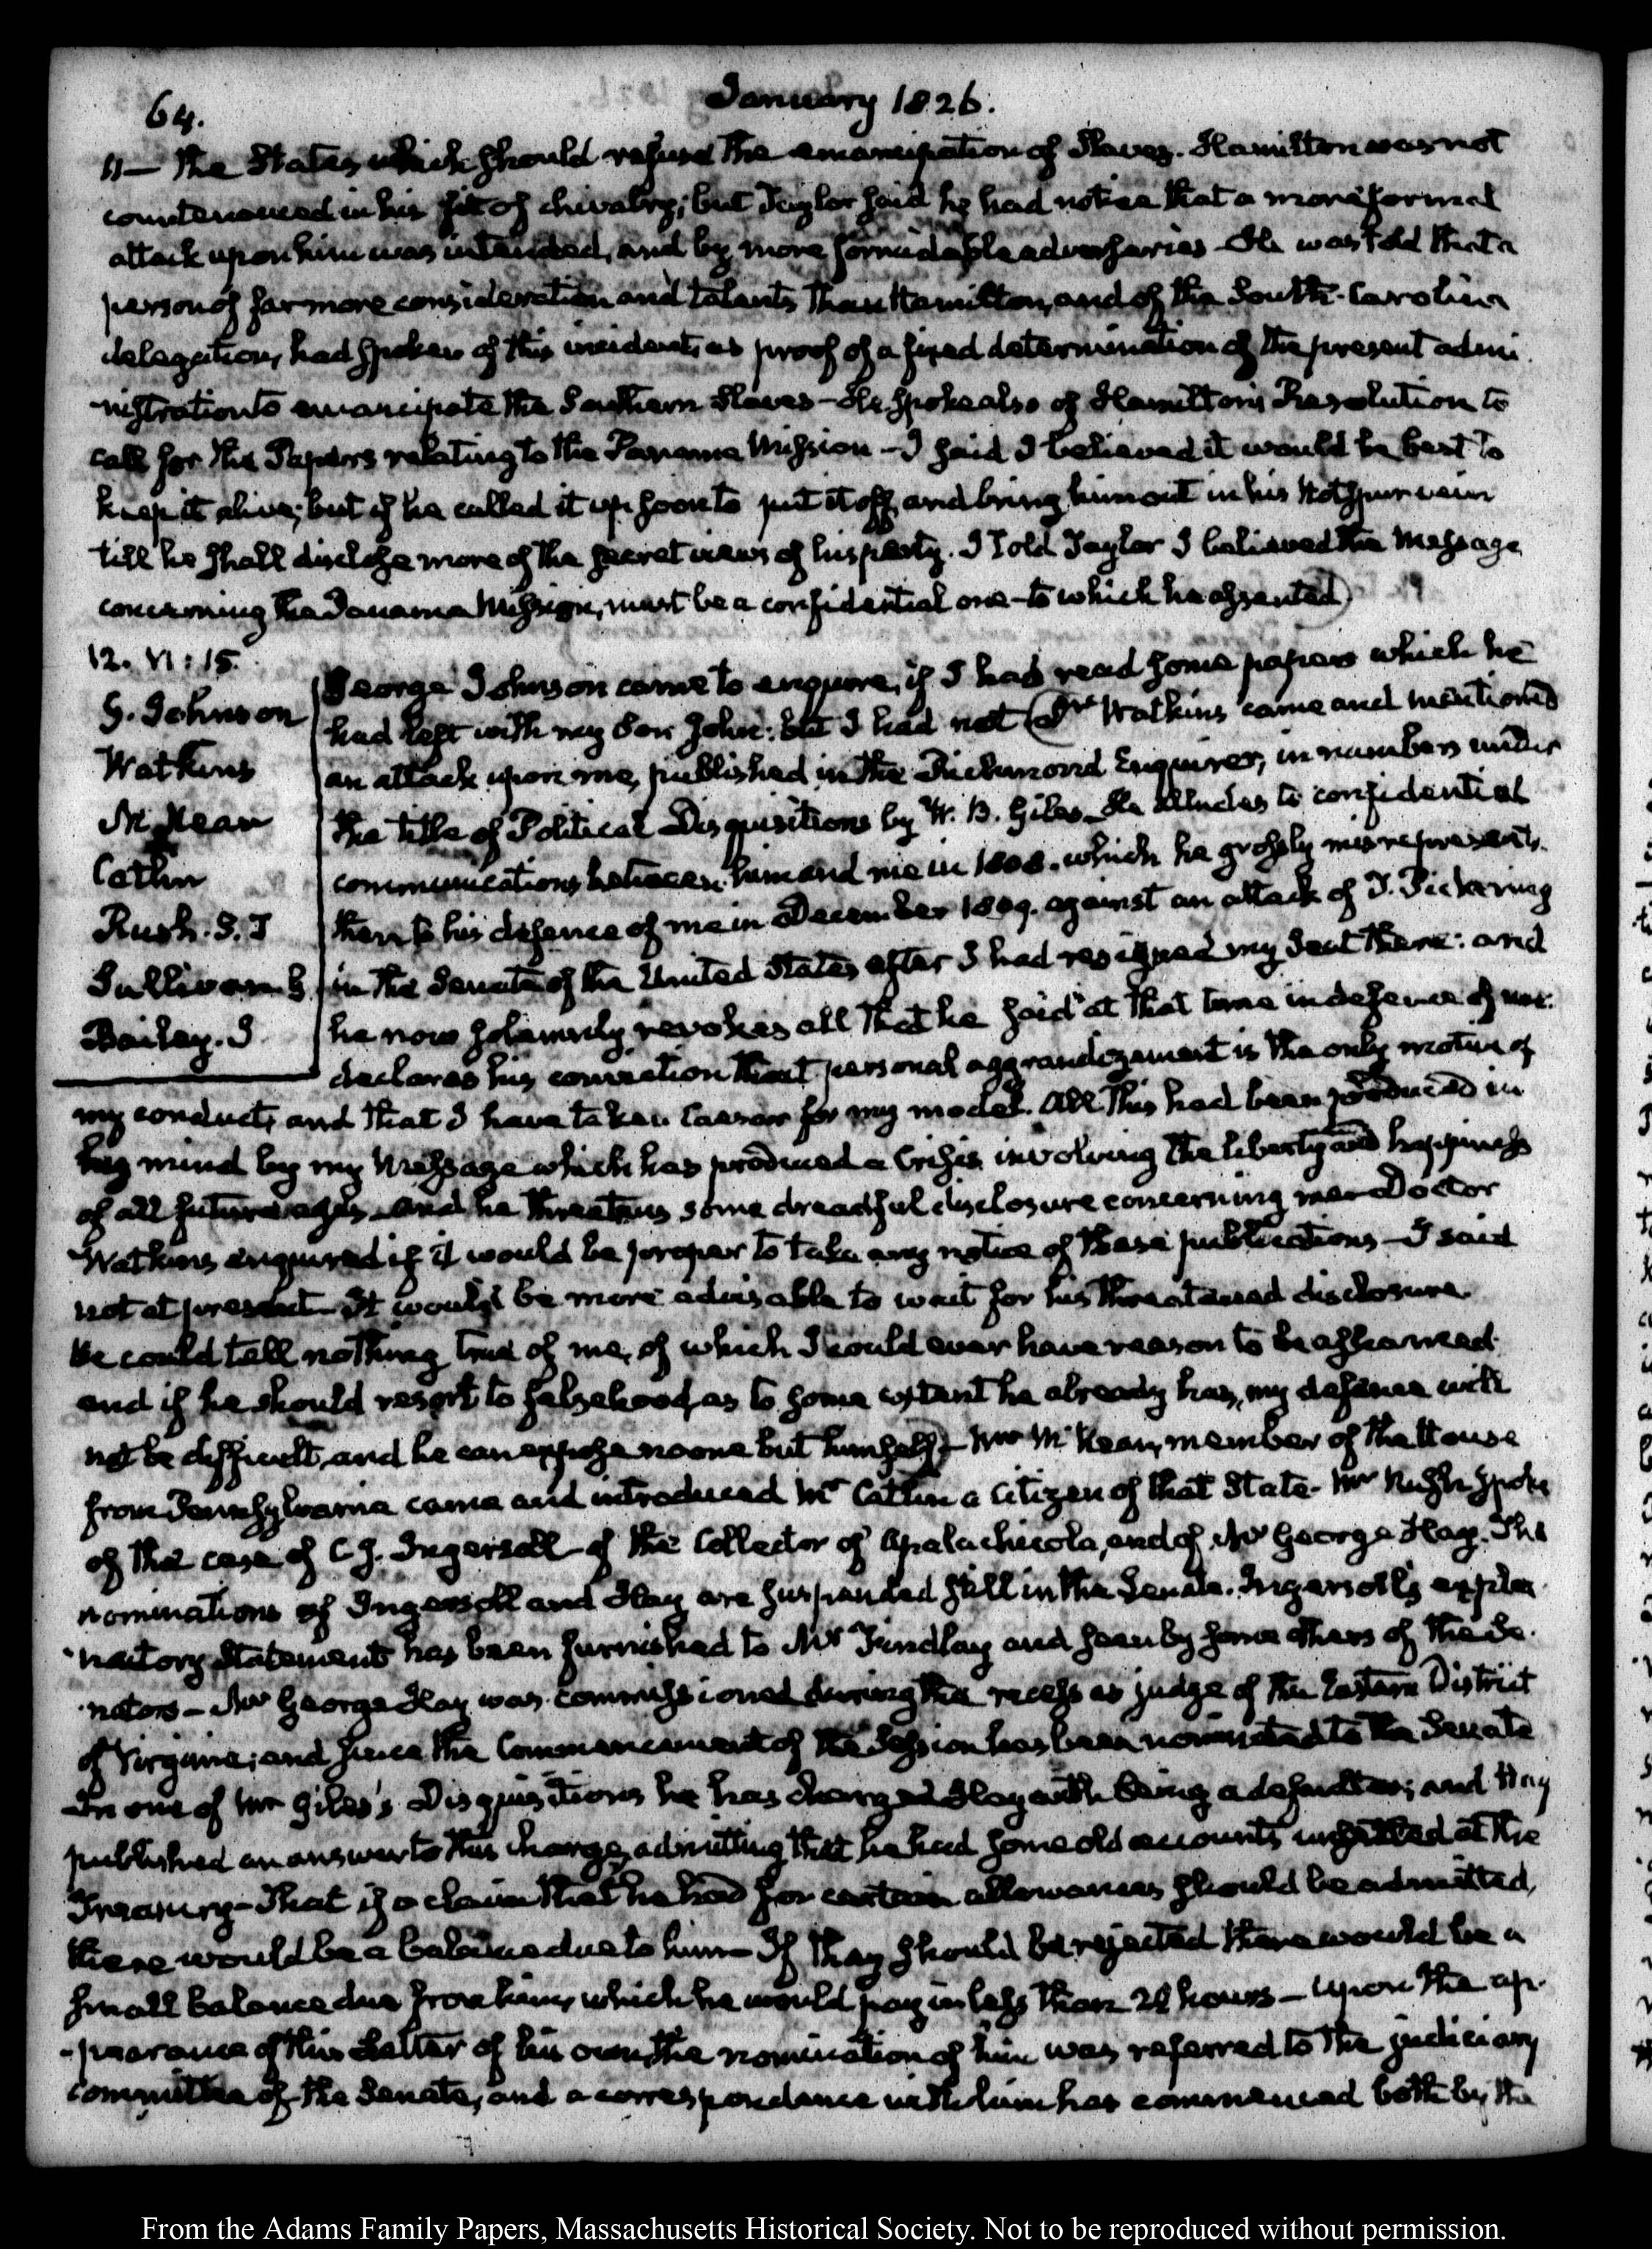 64.
January 1826.
11— the States which should refuse the emancipation of Slaves. Hamilton was not
countenanced in his fit of chivalry; but Taylor said he had notice that a more formal
attack upon him was intended, and by more formidable adversaries - He was told that a
person of far more consideration and talents than Hamilton, and of the South-Carolina
delegation, had spoken of this incident, as proof of a fixed determination of the present admi-
-nistration to emancipate the Southern Slaves - He spoke also of Hamilton's Resolution to
call for the Papers relating to the Panama Mission - I said I believed it would be best to
keep it alive; but if he called it up soon to put it off, and bring him out in his Hotspur vein
till he shall disclose more of the secret views of his party. I told Taylor I believed the Message
concerning the Panama Mission, must be a confidential one - to which he assented)
12. VI: 15.
G. Johnson
Watkins
McKean
Catlin
Rush. S. T
Sullivan. G
Bailey. J.
George Johnson came to enquire, if I had read some papers which he
had left with my Son John: but I had not (Dr Watkins came and mentioned
an attack upon me, published in the Richmond Enquirer, in numbers under
the title of Political Disquisitions by W. B. Giles - He alludes to confidential
communications between him and me in 1808. which he grossly misrepresents.
then to his defence of me in December 1809. against an attack of T. Pickering
in the Senate of the United States after I had resigned my Seat there: and
he now solemnly revokes all that he said at that time in defence of me:
declares his conviction that personal aggrandizement is the only motive of
my conduct, and that I have taken Caesar for my model. All this had been produced in
his mind by my Message which has produced a Crisis involving the liberty and happiness
of all future ages - and he threatens some dreadful disclosure concerning me - Doctor
Watkins enquired if it would be proper to take any notice of these publications - I said
not at present - It would be more advisable to wait for his threatened disclosure.
He could tell nothing true of me, of which I could ever have reason to be ashamed.
and if he should resort to falsehood, as to some extent he already has, my defence will
not be difficult, and he can expose no one but himself) - Mr McKean, member of the House
from Pennsylvania came and introduced Mr Catlin a Citizen of that State - Mr Rush spoke
of the case of C. J. Ingersoll - of the Collector of Apalachicola, and of Mr George Hay. The
nominations of Ingersoll and Hay are suspended still in the Senate. Ingersoll's expla-
-natory Statement has been furnished to Mr Findlay and seen by some others of the Se-
-nators - Mr George Hay was commissioned during the recess as judge of the Eastern District
of Virginia; and since the Commencement of the Session has been nominated to the Senate
In one of Mr Giles's Disquisitions he has charged Hay with being a defaulter; and Hay
published an answer to this charge, admitting that he had some old accounts unsettled at the
Treasury - That if a claim that he had for certain allowances should be admitted,
there would be a balance due to him - If they should be rejected there would be a
small balance due from him, which he would pay in less than 24 hours - Upon the ap-
-pearance of this Letter of his own, the nomination of him was referred to the judiciary
committee of the Senate, and a correspondence with him has commenced both by the
From the Adams Family Papers, Massachusetts Historical Society. Not to be reproduced without permission.